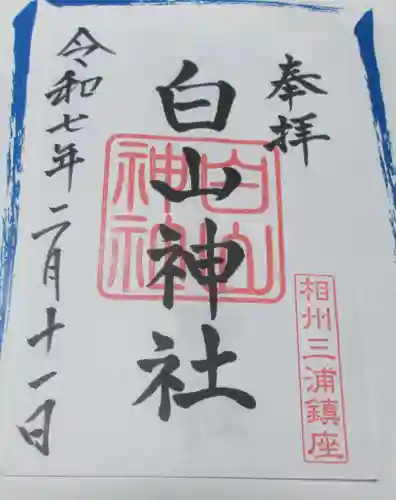 奉拝
白山神社
白山神社
相州三浦鎮座
令和七年二月十一日